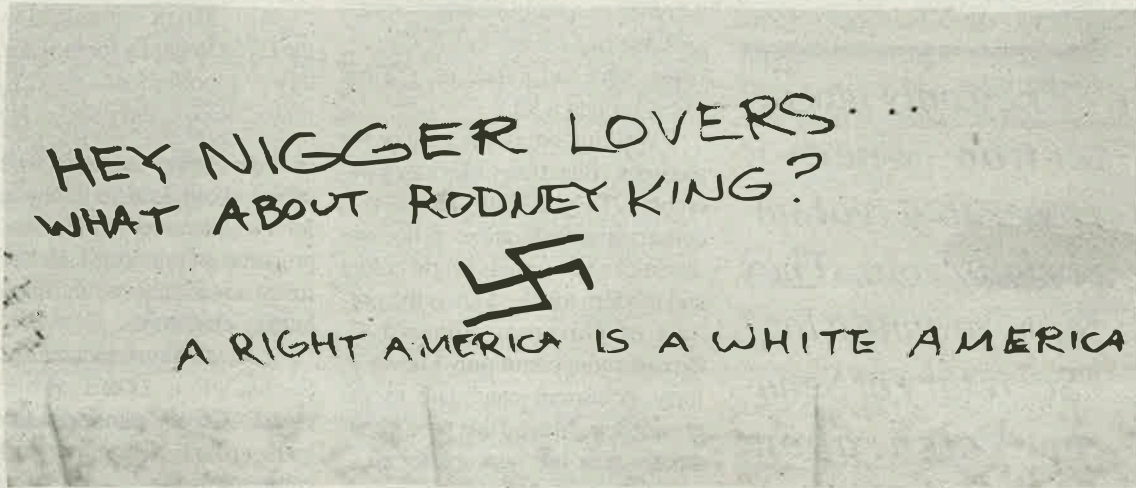 HEY NIGGER LOVERS....
WHAT ABOUT RODNEY KING?
A RIGHT AMERICA IS A WHITE AMERICA